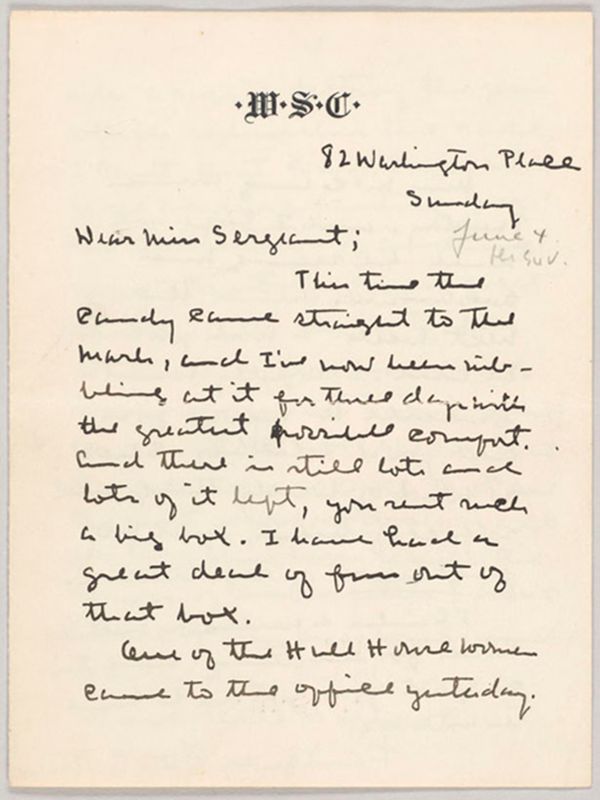 ·W·S·C·
82 Washington Place
Sunday
June 4
Dear Miss Sergeant;
This time the
candy came straight to the
mark, and I've now been nib-
bling at it for three days with
the greatest possible comfort.
And there is still lots and
lots of it left, you sent such
a big box. I have had a
great deal of fun out of
that box.
One of the Hull House women
came to the office yesterday.